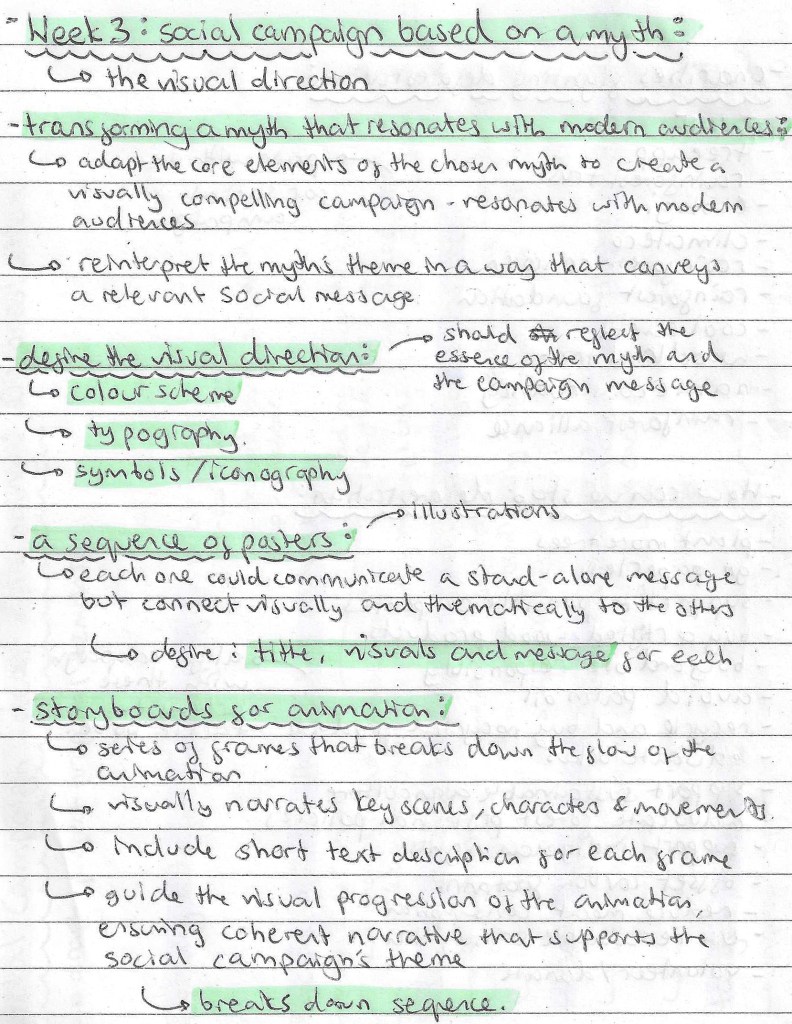 - Week 3: social campaign based on a myth:
↳ the visual direction
- transforming a myth that resonates with modern audiences:
↳ adapt the core elements of the chosen myth to create a
visually compelling campaign - resonates with modern
audiences
↳ reinterpret the myth's theme in a way that conveys
a relevant social message
- define the visual direction:
→ should reflect the
essence of the myth and
the campaign message
↳ colour scheme
↳ typography.
↳ symbols / iconography
- a sequence of posters:
→ illustrations
↳ each one could communicate a stand-alone message
but connect visually and thematically to the others
↳ define: title, visuals and message for each
- storyboards for animation:
↳ series of frames that breaks down the flow of the
animation
↳ visually narrates key scenes, characters & movements.
↳ include short text description for each frame
↳ guide the visual progression of the animation,
ensuring coherent narrative that supports the
social campaign's theme
↳ breaks down sequence.